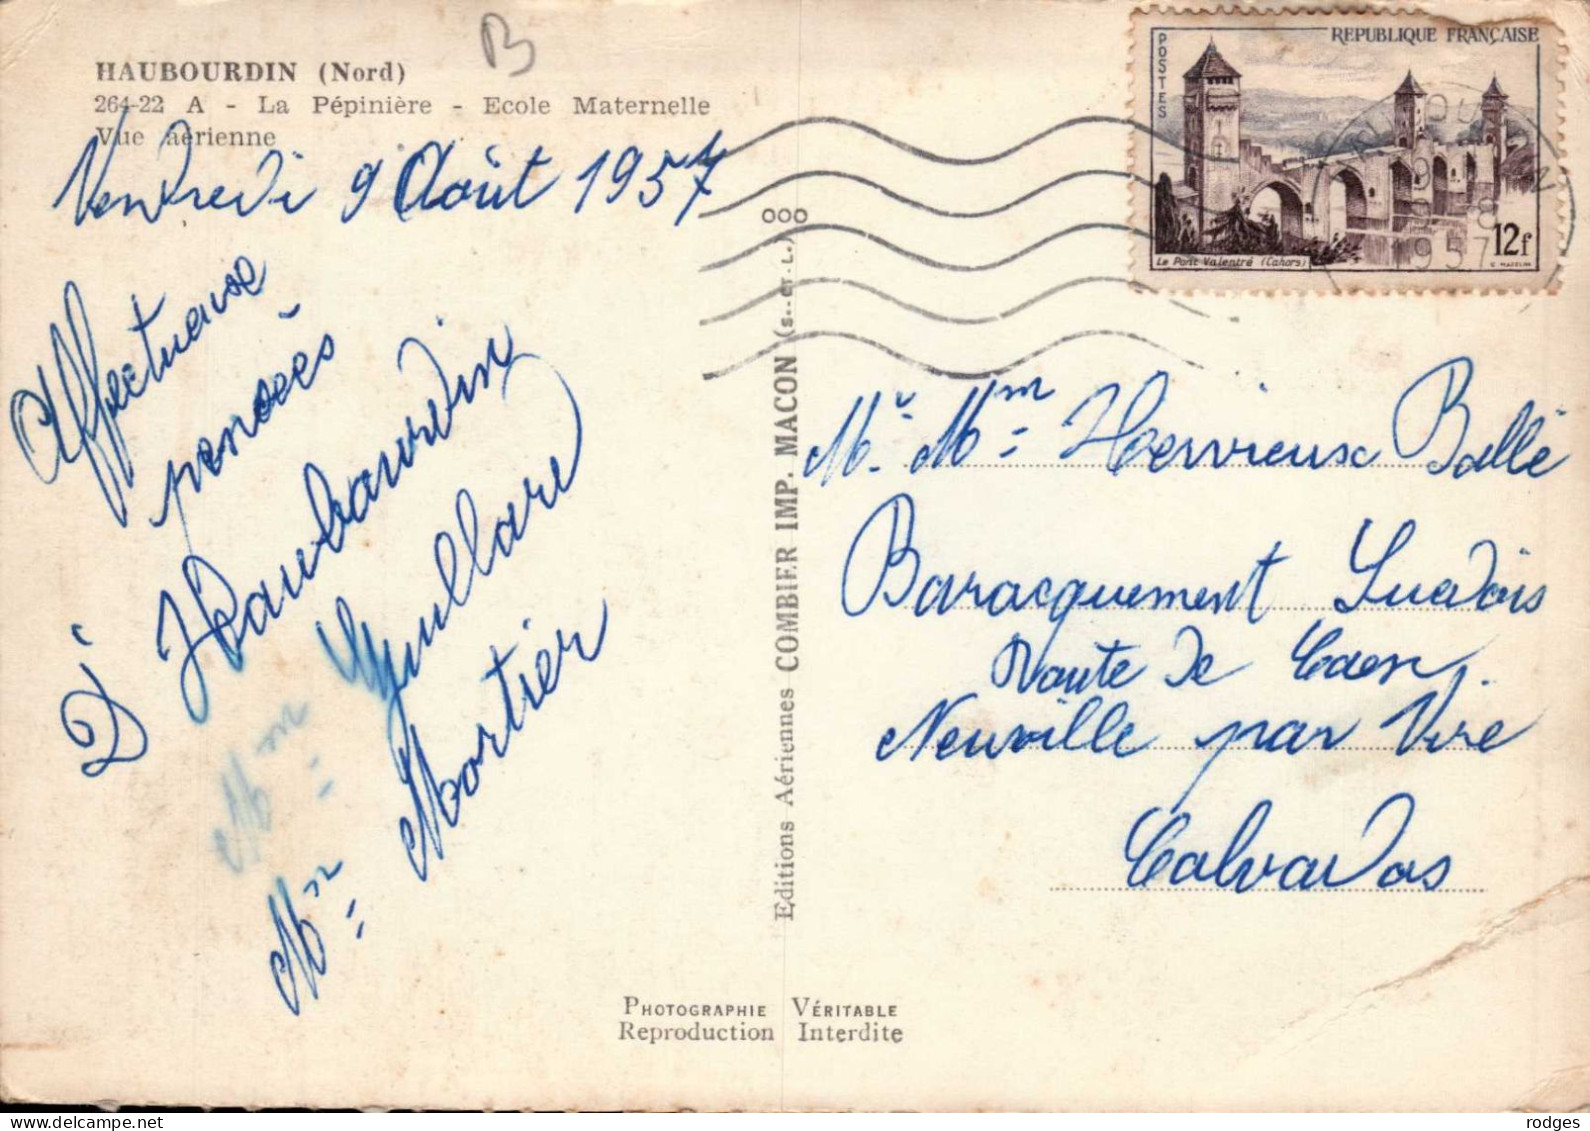 HAUBOURDIN (Nord)
264-22 A - La Pépinière - Ecole Maternelle
Vue aérienne
B
Vendredi 9 Août 1957
Affectueuse
pensèès
D'Haubourdin
Mm
Mm
Mortier
POSTES
REPUBLIQUE FRANÇAISE
Le Pont Valentré (Cahors)
12f
C. MAZELIN
1957
Editions Aériennes COMBIER IMP. MACON (S.-ET-L.) 000
Mr Mm Hervieux Ballé
Baracquement Suédois
Route de Caen
Neuville par Vire
Calvados
PHOTOGRAPHIE VÉRITABLE
Reproduction Interdite
rodges